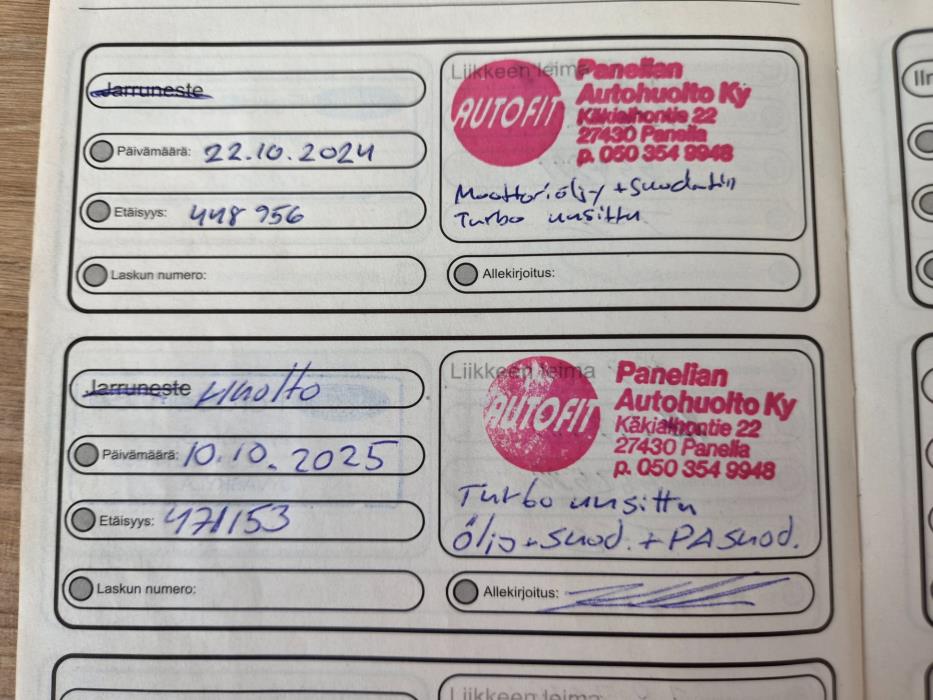 Jarruneste
Liikkeen leima
AUTOFIT
Panelian
Autohuolto Ky
Käkialhontie 22
27430 Panelia
p. 050 354 9948
Päivämäärä: 22.10.2024
Etäisyys: 448 956
Moottoriöljy + Suodatin
Turbo uusittu
Laskun numero:
Allekirjoitus:
Jarruneste Huolto
Liikkeen leima
AUTOFIT
Panelian
Autohuolto Ky
Käkialhontie 22
27430 Panelia
p. 050 354 9948
Päivämäärä: 10.10.2025
Etäisyys: 471153
Turbo uusittu
Öljy + Suod. + PA suod.
Laskun numero:
Allekirjoitus:
Liikkeen leima